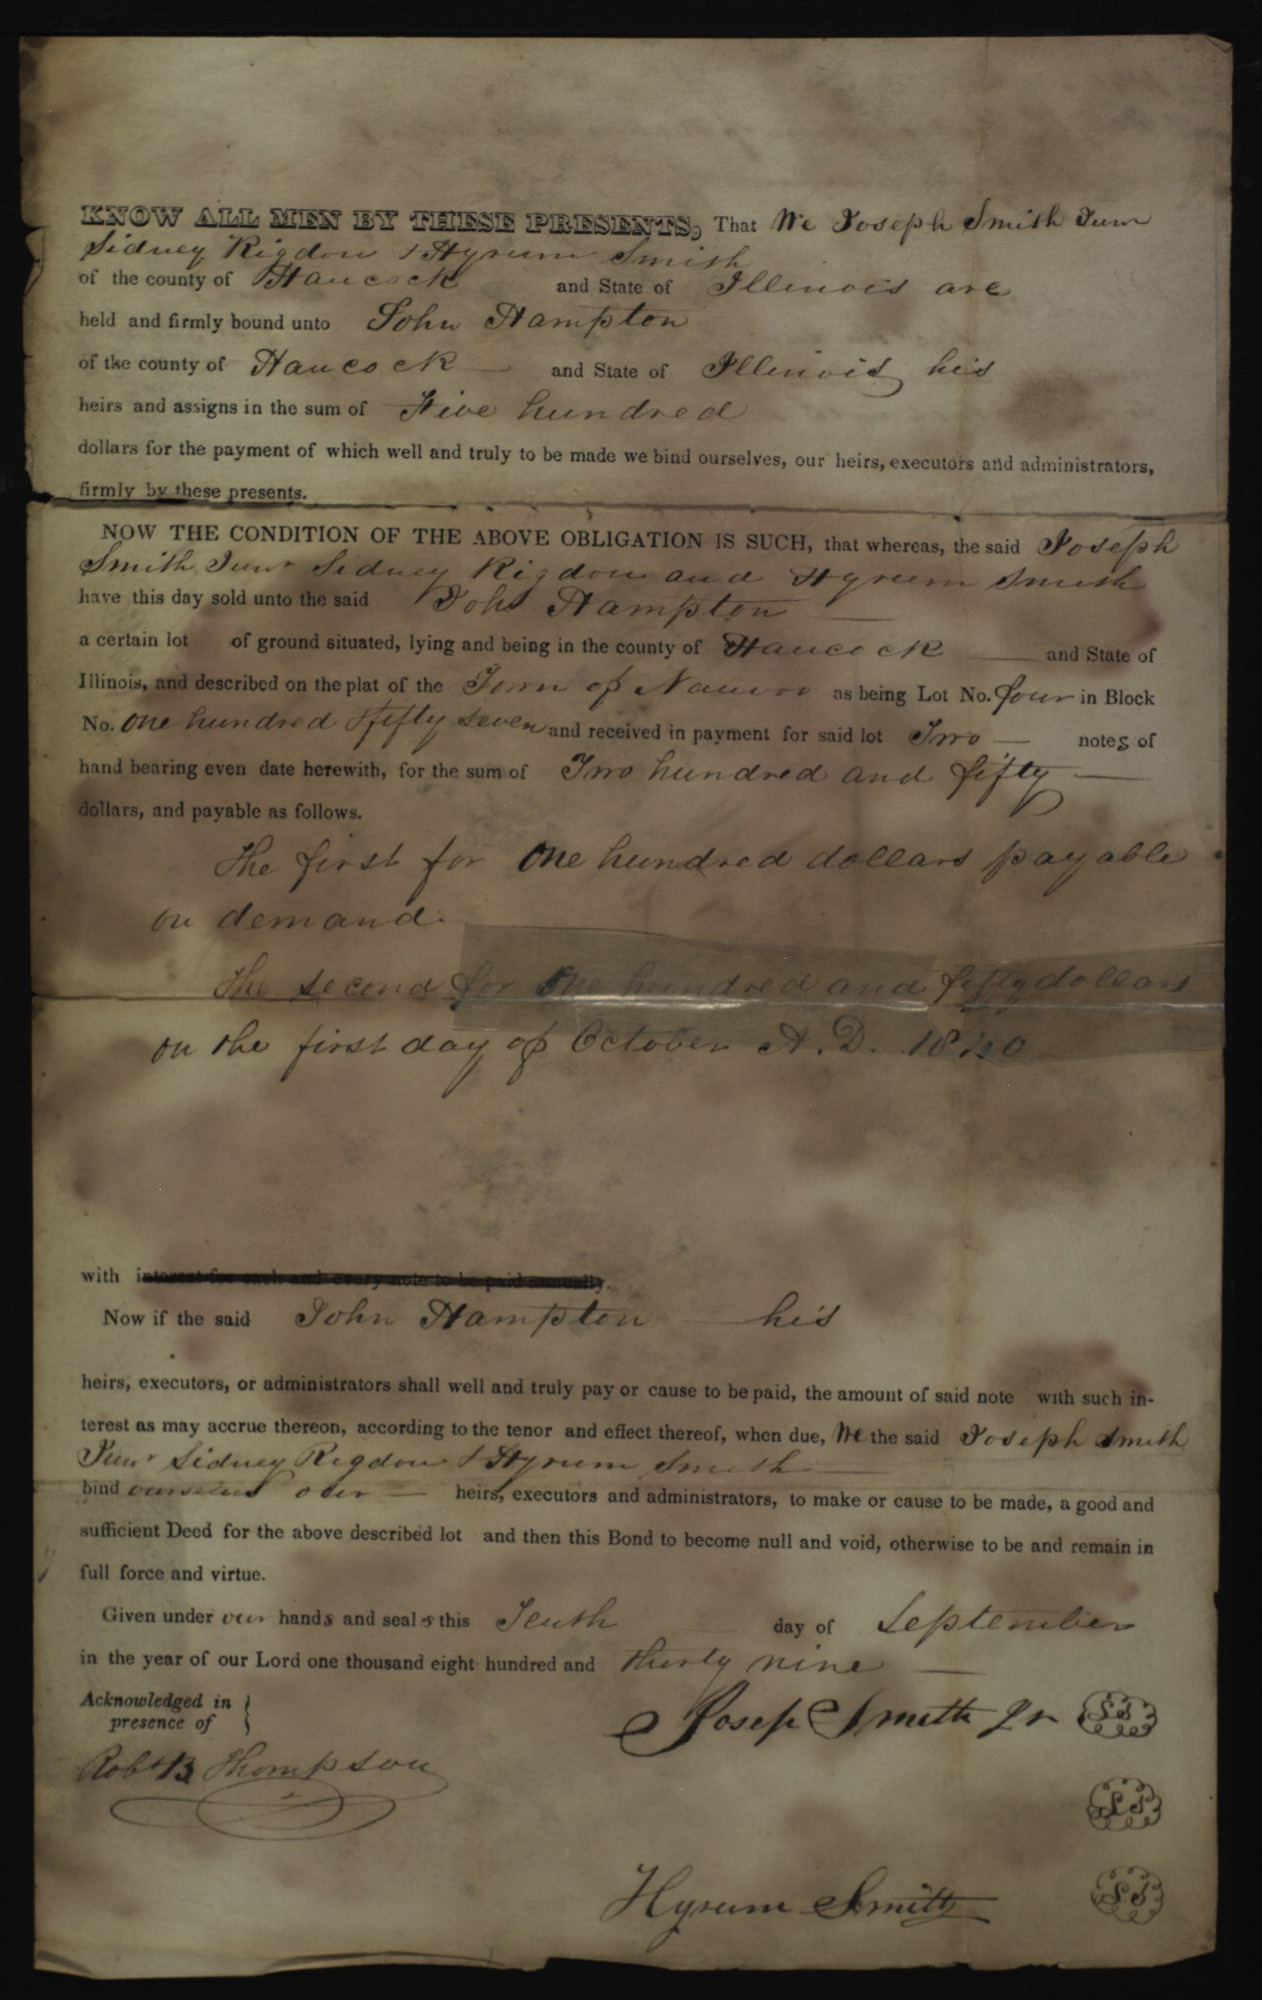 KNOW ALL MEN BY THESE PRESENTS, That We Joseph Smith Junr
Sidney Rigdon & Hyrum Smith
of the county of Hancock and State of Illinois are
held and firmly bound unto John Hampton
of the county of Hancock — and State of Illinois his
heirs and assigns in the sum of Five hundred
dollars for the payment of which well and truly to be made we bind ourselves, our heirs, executors and administrators,
firmly by these presents.
NOW THE CONDITION OF THE ABOVE OBLIGATION IS SUCH, that whereas, the said Joseph
Smith Junr Sidney Rigdon and Hyrum Smith
have this day sold unto the said John Hampton —
a certain lot of ground situated, lying and being in the county of Hancock — and State of
Illinois, and described on the plat of the Town of Nauvoo as being Lot No. four in Block
No. One hundred & fifty seven and received in payment for said lot Two — notes of
hand bearing even date herewith, for the sum of Two hundred and fifty —
dollars, and payable as follows.
The first for One hundred dollars payable
on demand.
The second for One hundred and fifty dollars
on the first day of October A. D. 1840
with interest for each and every note to be paid annually.
Now if the said John Hampton — his
heirs, executors, or administrators shall well and truly pay or cause to be paid, the amount of said note with such in-
terest as may accrue thereon, according to the tenor and effect thereof, when due, We the said Joseph Smith
Junr Sidney Rigdon & Hyrum Smith —
bind ourselves our — heirs, executors and administrators, to make or cause to be made, a good and
sufficient Deed for the above described lot and then this Bond to become null and void, otherwise to be and remain in
full force and virtue.
Given under our hands and seals this Tenth — day of September
in the year of our Lord one thousand eight hundred and thirty nine —
Acknowledged in
presence of
Joseph Smith Jr LS
Robt B Thompson
LS
Hyrum Smith LS